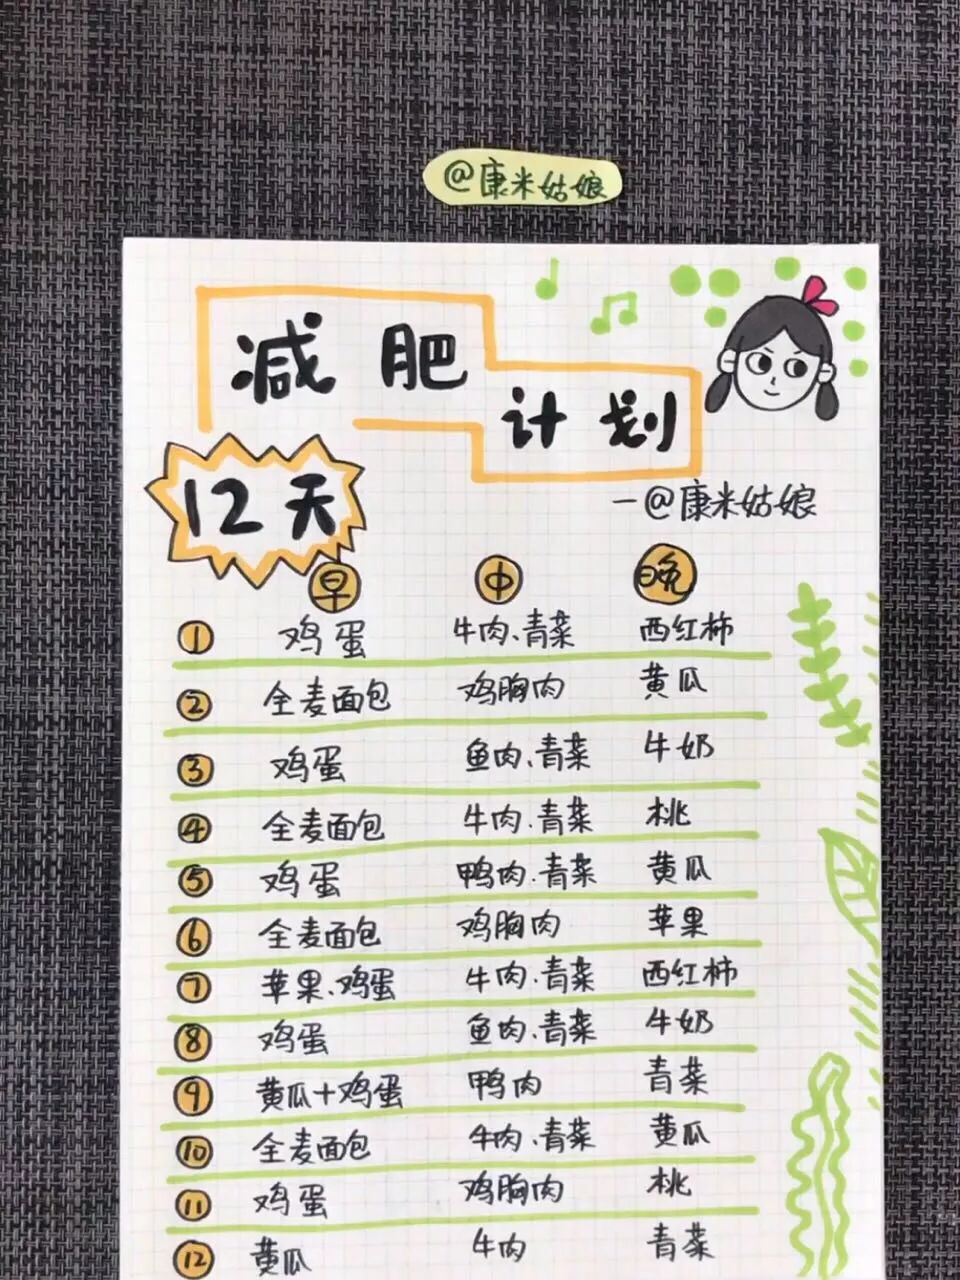 @康米姑娘
减肥
计划
12天
—@康米姑娘
早 中 晚
① 鸡蛋 牛肉、青菜 西红柿
② 全麦面包 鸡胸肉 黄瓜
③ 鸡蛋 鱼肉、青菜 牛奶
④ 全麦面包 牛肉、青菜 桃
⑤ 鸡蛋 鸭肉、青菜 黄瓜
⑥ 全麦面包 鸡胸肉 苹果
⑦ 苹果、鸡蛋 牛肉、青菜 西红柿
⑧ 鸡蛋 鱼肉、青菜 牛奶
⑨ 黄瓜+鸡蛋 鸭肉 青菜
⑩ 全麦面包 牛肉、青菜 黄瓜
⑪ 鸡蛋 鸡胸肉 桃
⑫ 黄瓜 牛肉 青菜